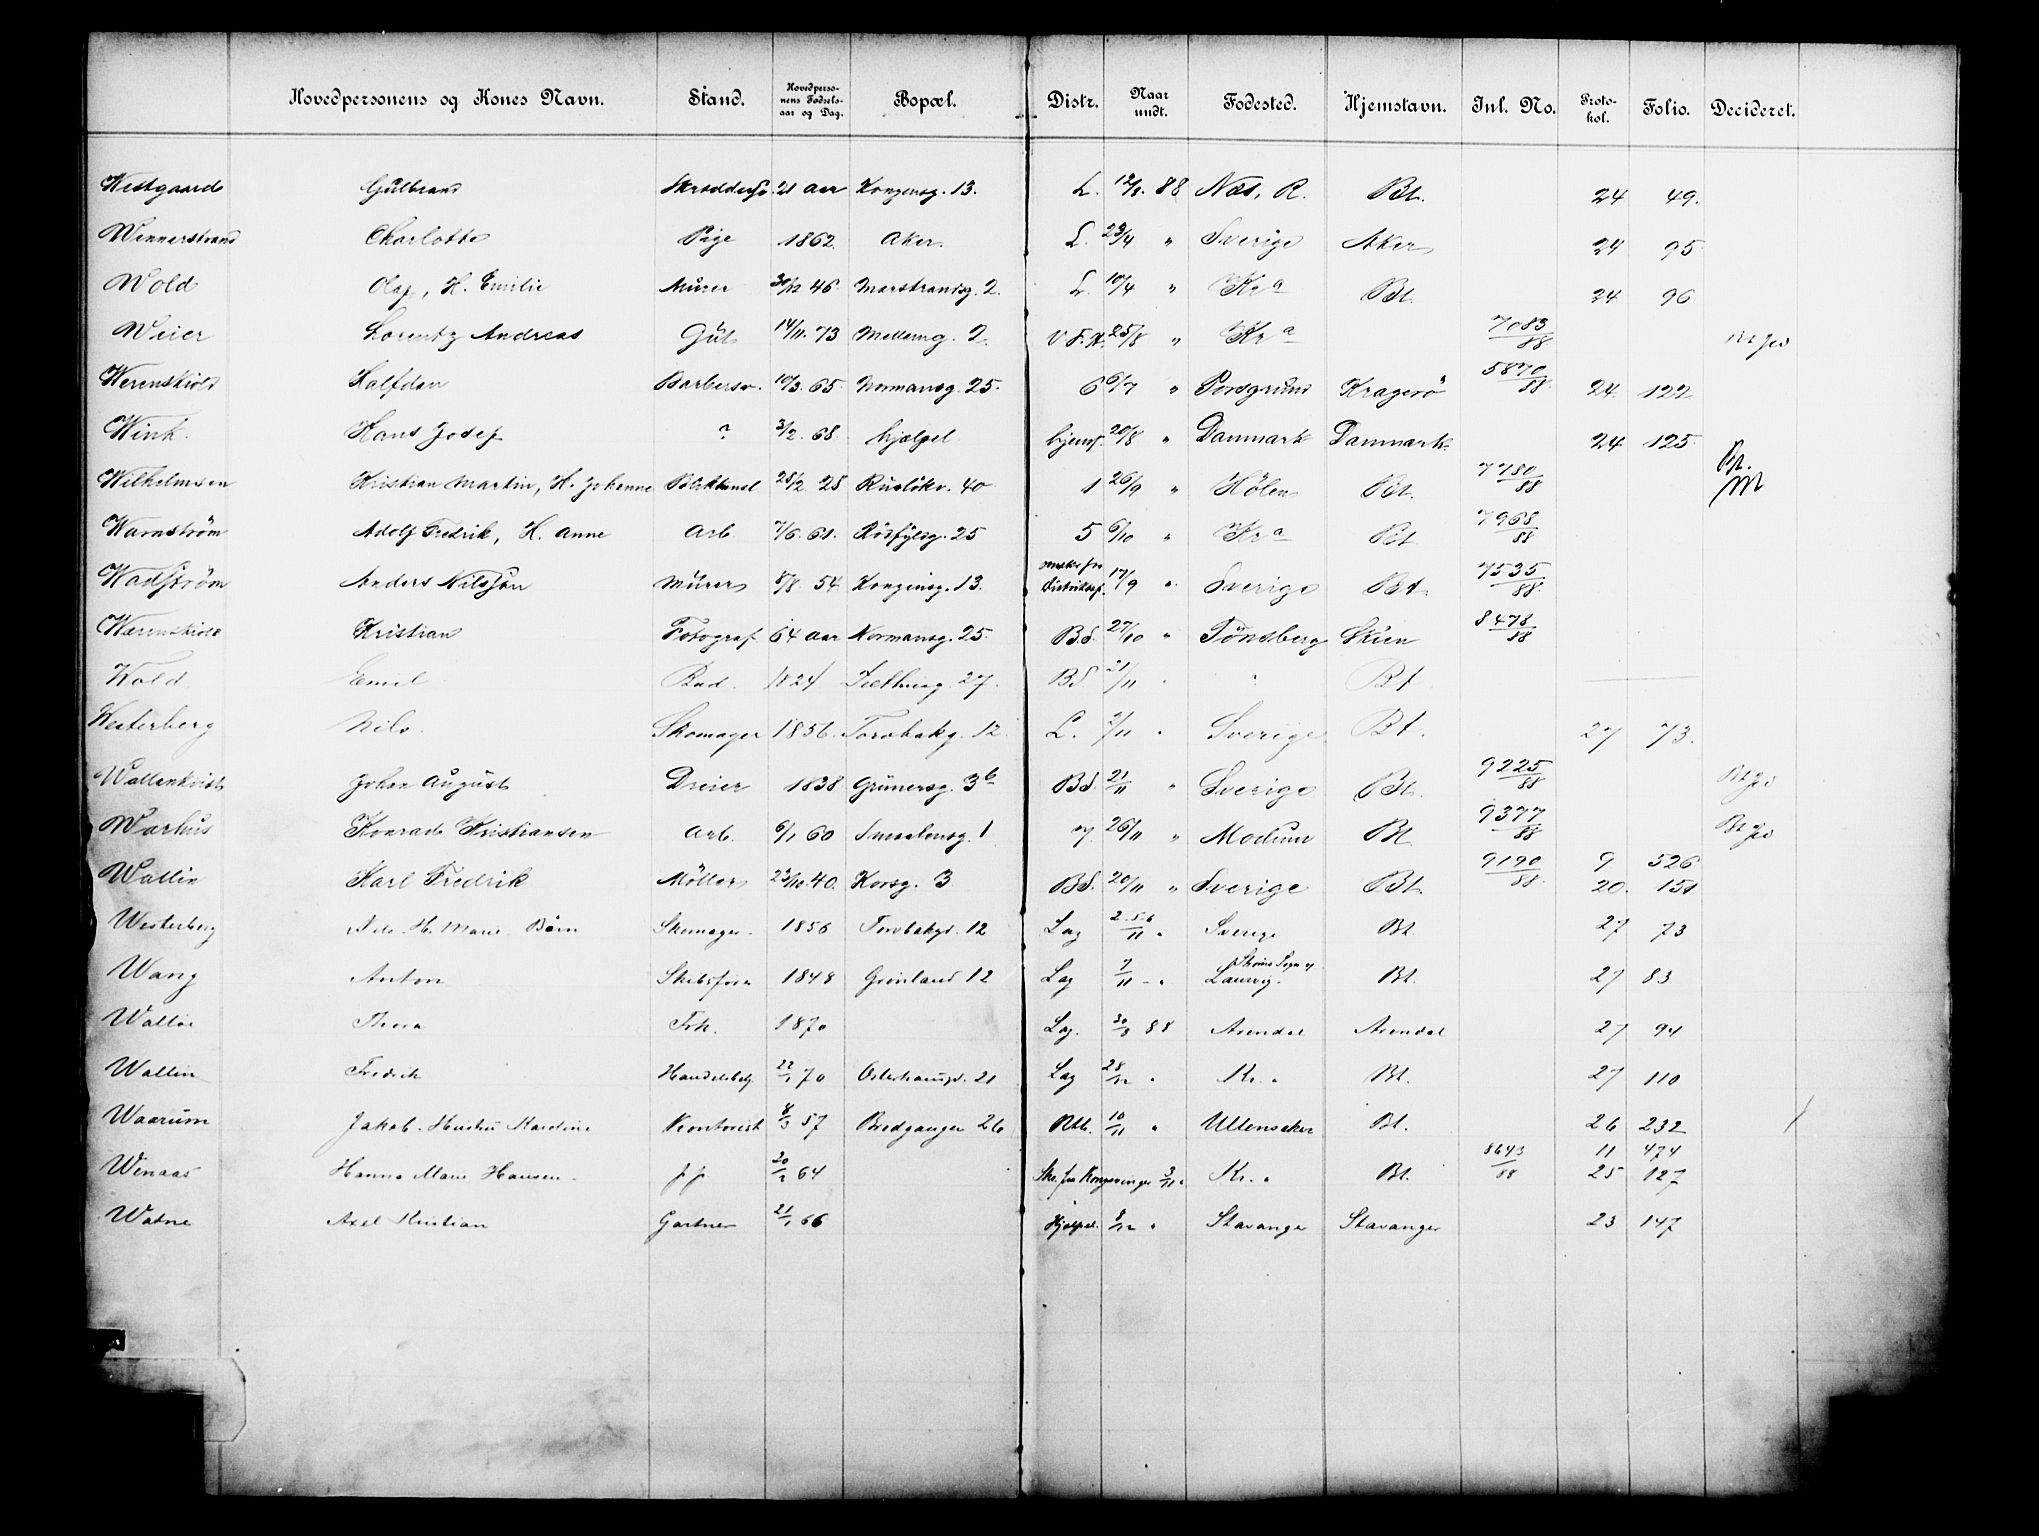 Hovedpersonens og Kones Navn. Stand. Hovedpersonens Fødselsaar og Dag. Bopæl. Distr. Naar undt. Fødested. Hjemstavn. Inl. No. Protokol. Folio. Decideret.
Westgaard Gulbrand Skræddersv. 21 aar Kongensg. 13. L. 12/1. 88 Næs, R. Bt. 24 49.
Wennerstrand Charlotte Pige 1862 Aker. L. 23/4 " Sverige Aker 24 95
Wold Olaf, H. Emilie Murer 30/12 46 Marstrandsg. 2. L. 10/4 " Kra Bt. 24 96
Weier Lorentz Andreas Gut 14/11. 73 Mellemg. 2. V.F.K. 25/8 " Kra 7083/88
Werenskiold Halfdan Barbersv. 10/3. 65. Normansg. 25. 6 6/7 " Porsgrund Kragerö 5870/88 24. 122
Wink. Hans Josef ? 3/2. 68. hjælpel hjemf. 20/8 " Danmark Danmark. 24 125.
Wilhelmsen Kristian Martin, H. Johanne Blikkensl. 28/2 28 Ruslökv. 40 1 26/9 " Hölen Bt. 7780/88 Bt.
Warnström Adolf Fredrik, H. Anne Arb 7/6. 61. Rösfyldsg. 25 5 6/10 " Kra Bt 7968/88
Wadström Anders Nilsson Murer 8/8. 54. Kongensg. 13. 17/9 " Sverige Bt 7535/88
Werenskiold Kristian Fotograf 64 aar Normansg. 25. B.d. 27/10 " Tönsberg Skien 8478/88
Wold Emil Bud. 1824 Telthusg. 27. Bd. 21/11 " " Bt
Westerberg Nils. Skomager 1856. Torvbakg. 12 L. 2/11 " Sverige Bt. 27 73.
Wallenkvist Johan August Dreier 1838 Grünersg. 3b Bd. 21/11 " Sverige Bt. 9225/88 Bt Jed
Warhus Konrad Kristiansen Arb. 6/1 60 Smaalensg. 1 7. 26/11 " Modum Bt 9377/88 Bt Jed
Wallin Karl Fredrik Möller 23/10 40. Korsg. 3 Bd. 20/11 " Sverige Bt. 9190/88. 9 526
20. 151
Westerberg Nils. H. Marie. Børn Skomager. 1856 Torvbakgd. 12 Lag 2.5.6/11 " Sverige Bt 27 73
Wang Anton Skibsfører 1848 Grønland 12 Lag 7/11 " Laurvig. Bt. 27 83
Walløe Thora Frk. 1870 Lag. 30/3 88 Arendal Arendal 27 94
Wallin Fredrik Handelsbetj. 22/1 70 Osterhausgd. 21 Lag 28/12 " Kr. a Bt. 27 110
Waarum Jakob. Hustru Karoline Kontorist 8/3 57 Brødganger 26 Rtb. 10/11 " Ullensaker Bt. 26 232
Wenaas Hanna Marie Hansen. ff 20/2 64 Skr. fra Kongsvinger 3/11 " Kr. a Bt. 8643/88 11 474
25 127
Watne Axel Kristian Gartner 21/1 66 Hjælpel. 8/12 " Stavanger Stavanger 23 147